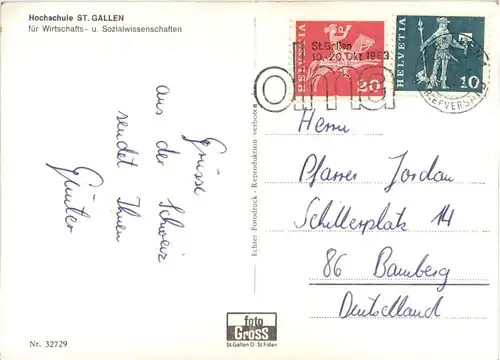 Hochschule ST. GALLEN
für Wirtschafts- u. Sozialwissenschaften
Grüsse
aus der Schweiz
sendet Ihnen
Günter
Echter Fotodruck - Reproduktion verboten
HELVETIA
20
HELVETIA
10
St.Gallen
10.-20. Okt. 1963
olma
BRIEFVERSAND
Herrn
Pfarrer Jordan
Schillerplatz 14
86 Bamberg
Deutschland
foto
Gross
St.Gallen O St.Fiden
Nr. 32729